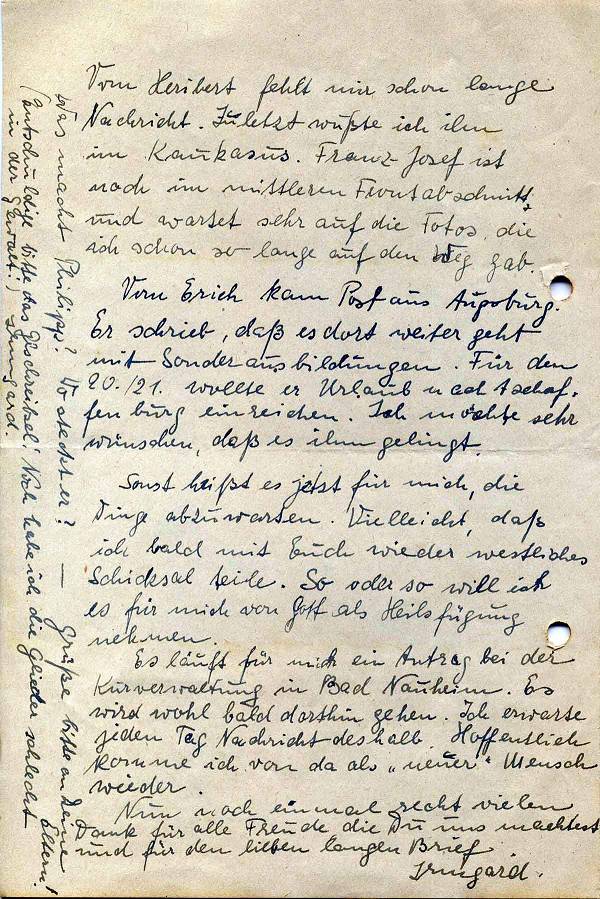 Vom Heribert fehlt mir schon lange
Nachricht. Zuletzt wußte ich ihn
im Kaukasus. Franz-Josef ist
noch im mittleren Frontabschnitt
und wartet sehr auf die Fotos, die
ich schon so lange auf den Weg gab.
Vom Erich kam Post aus Augsburg.
Er schrieb, daß es dort weiter geht
mit Sonderausbildungen. Für den
20./21. wollte er Urlaub nach Aschaf-
fenburg einreichen. Ich möchte sehr
wünschen, daß es ihm gelingt.
Sonst heißt es jetzt für mich, die
Dinge abzuwarten. Vielleicht, daß
ich bald mit Euch wieder westliches
Schicksal teile. So oder so will ich
es für mich von Gott als Heilsfügung
nehmen.
Es läuft für mich ein Antrag bei der
Kurverwaltung in Bad Nauheim. Es
wird wohl bald dorthin gehen. Ich erwarte
jeden Tag Nachricht deshalb. Hoffentlich
komme ich von da als „neuer" Mensch
wieder.
Nun noch einmal recht vielen
Dank für alle Freude die Du uns machtest
und für den lieben langen Brief
Irmgard.
Was macht Philipp? Wo steckt er? — Grüße bitte an Deine
Eltern!
(entschuldige bitte das Geschreibsel! Noch habe ich die Glieder schlecht
in der Gewalt!) Irmgard.